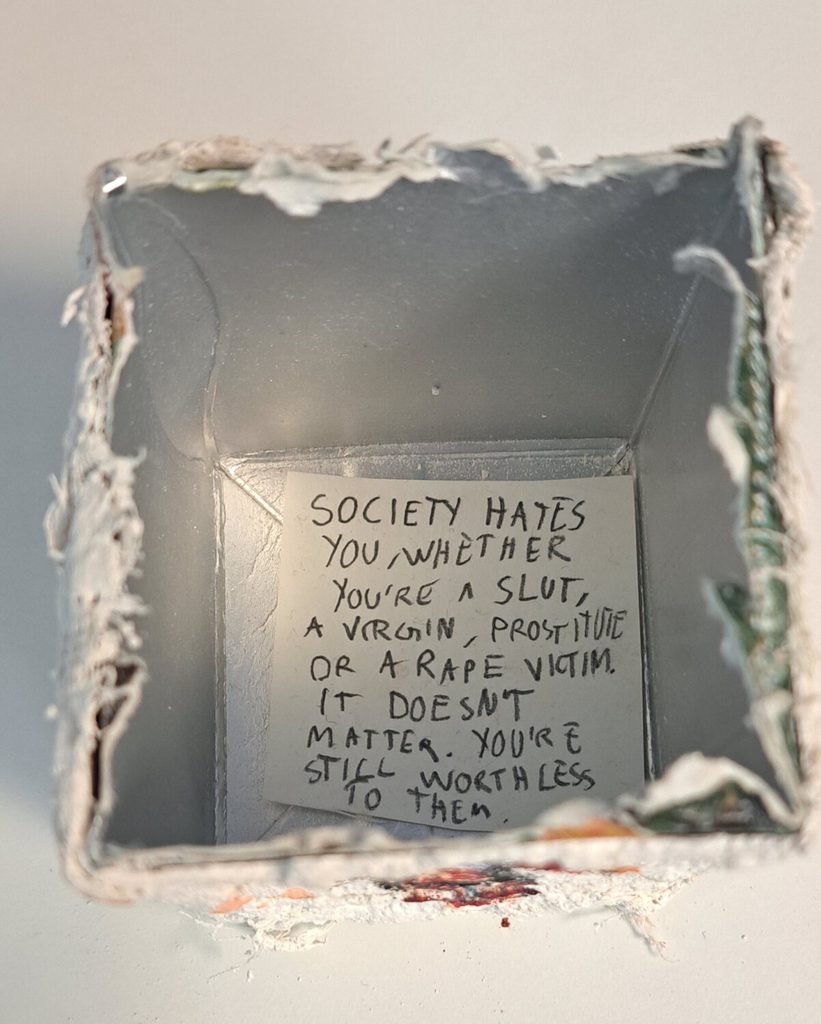 SOCIETY HATES
YOU, WHETHER
YOU'RE A SLUT,
A VIRGIN, PROSTITUTE
OR A RAPE VICTIM.
IT DOESN'T
MATTER. YOU'RE
STILL WORTHLESS
TO THEM.